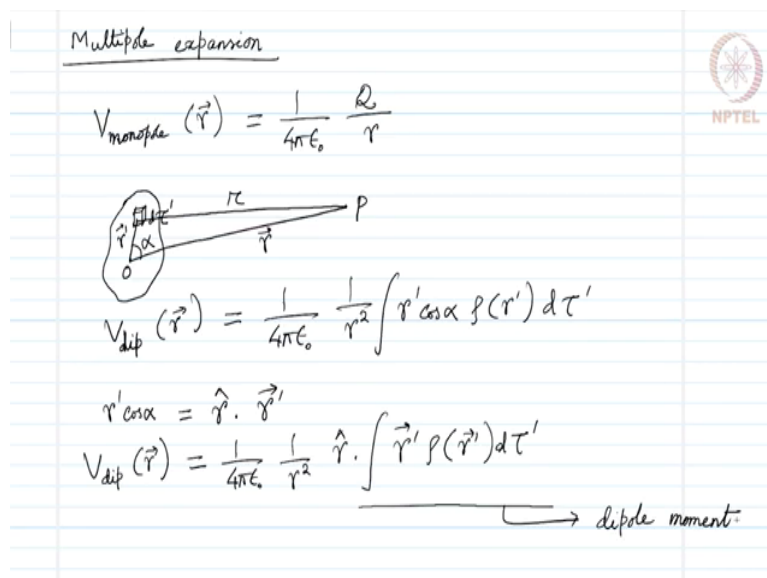 Multipole expansion
NPTEL
V_monopole (r⃗) = 1/4πϵ₀ Q/r
dτ' r P
r⃗' α r⃗
O
V_dip (r⃗) = 1/4πϵ₀ 1/r² ∫ r' cosα ρ(r') dτ'
r' cosα = r̂ . r⃗'
V_dip (r⃗) = 1/4πϵ₀ 1/r² r̂ . ∫ r⃗' ρ(r⃗') dτ'
→ dipole moment